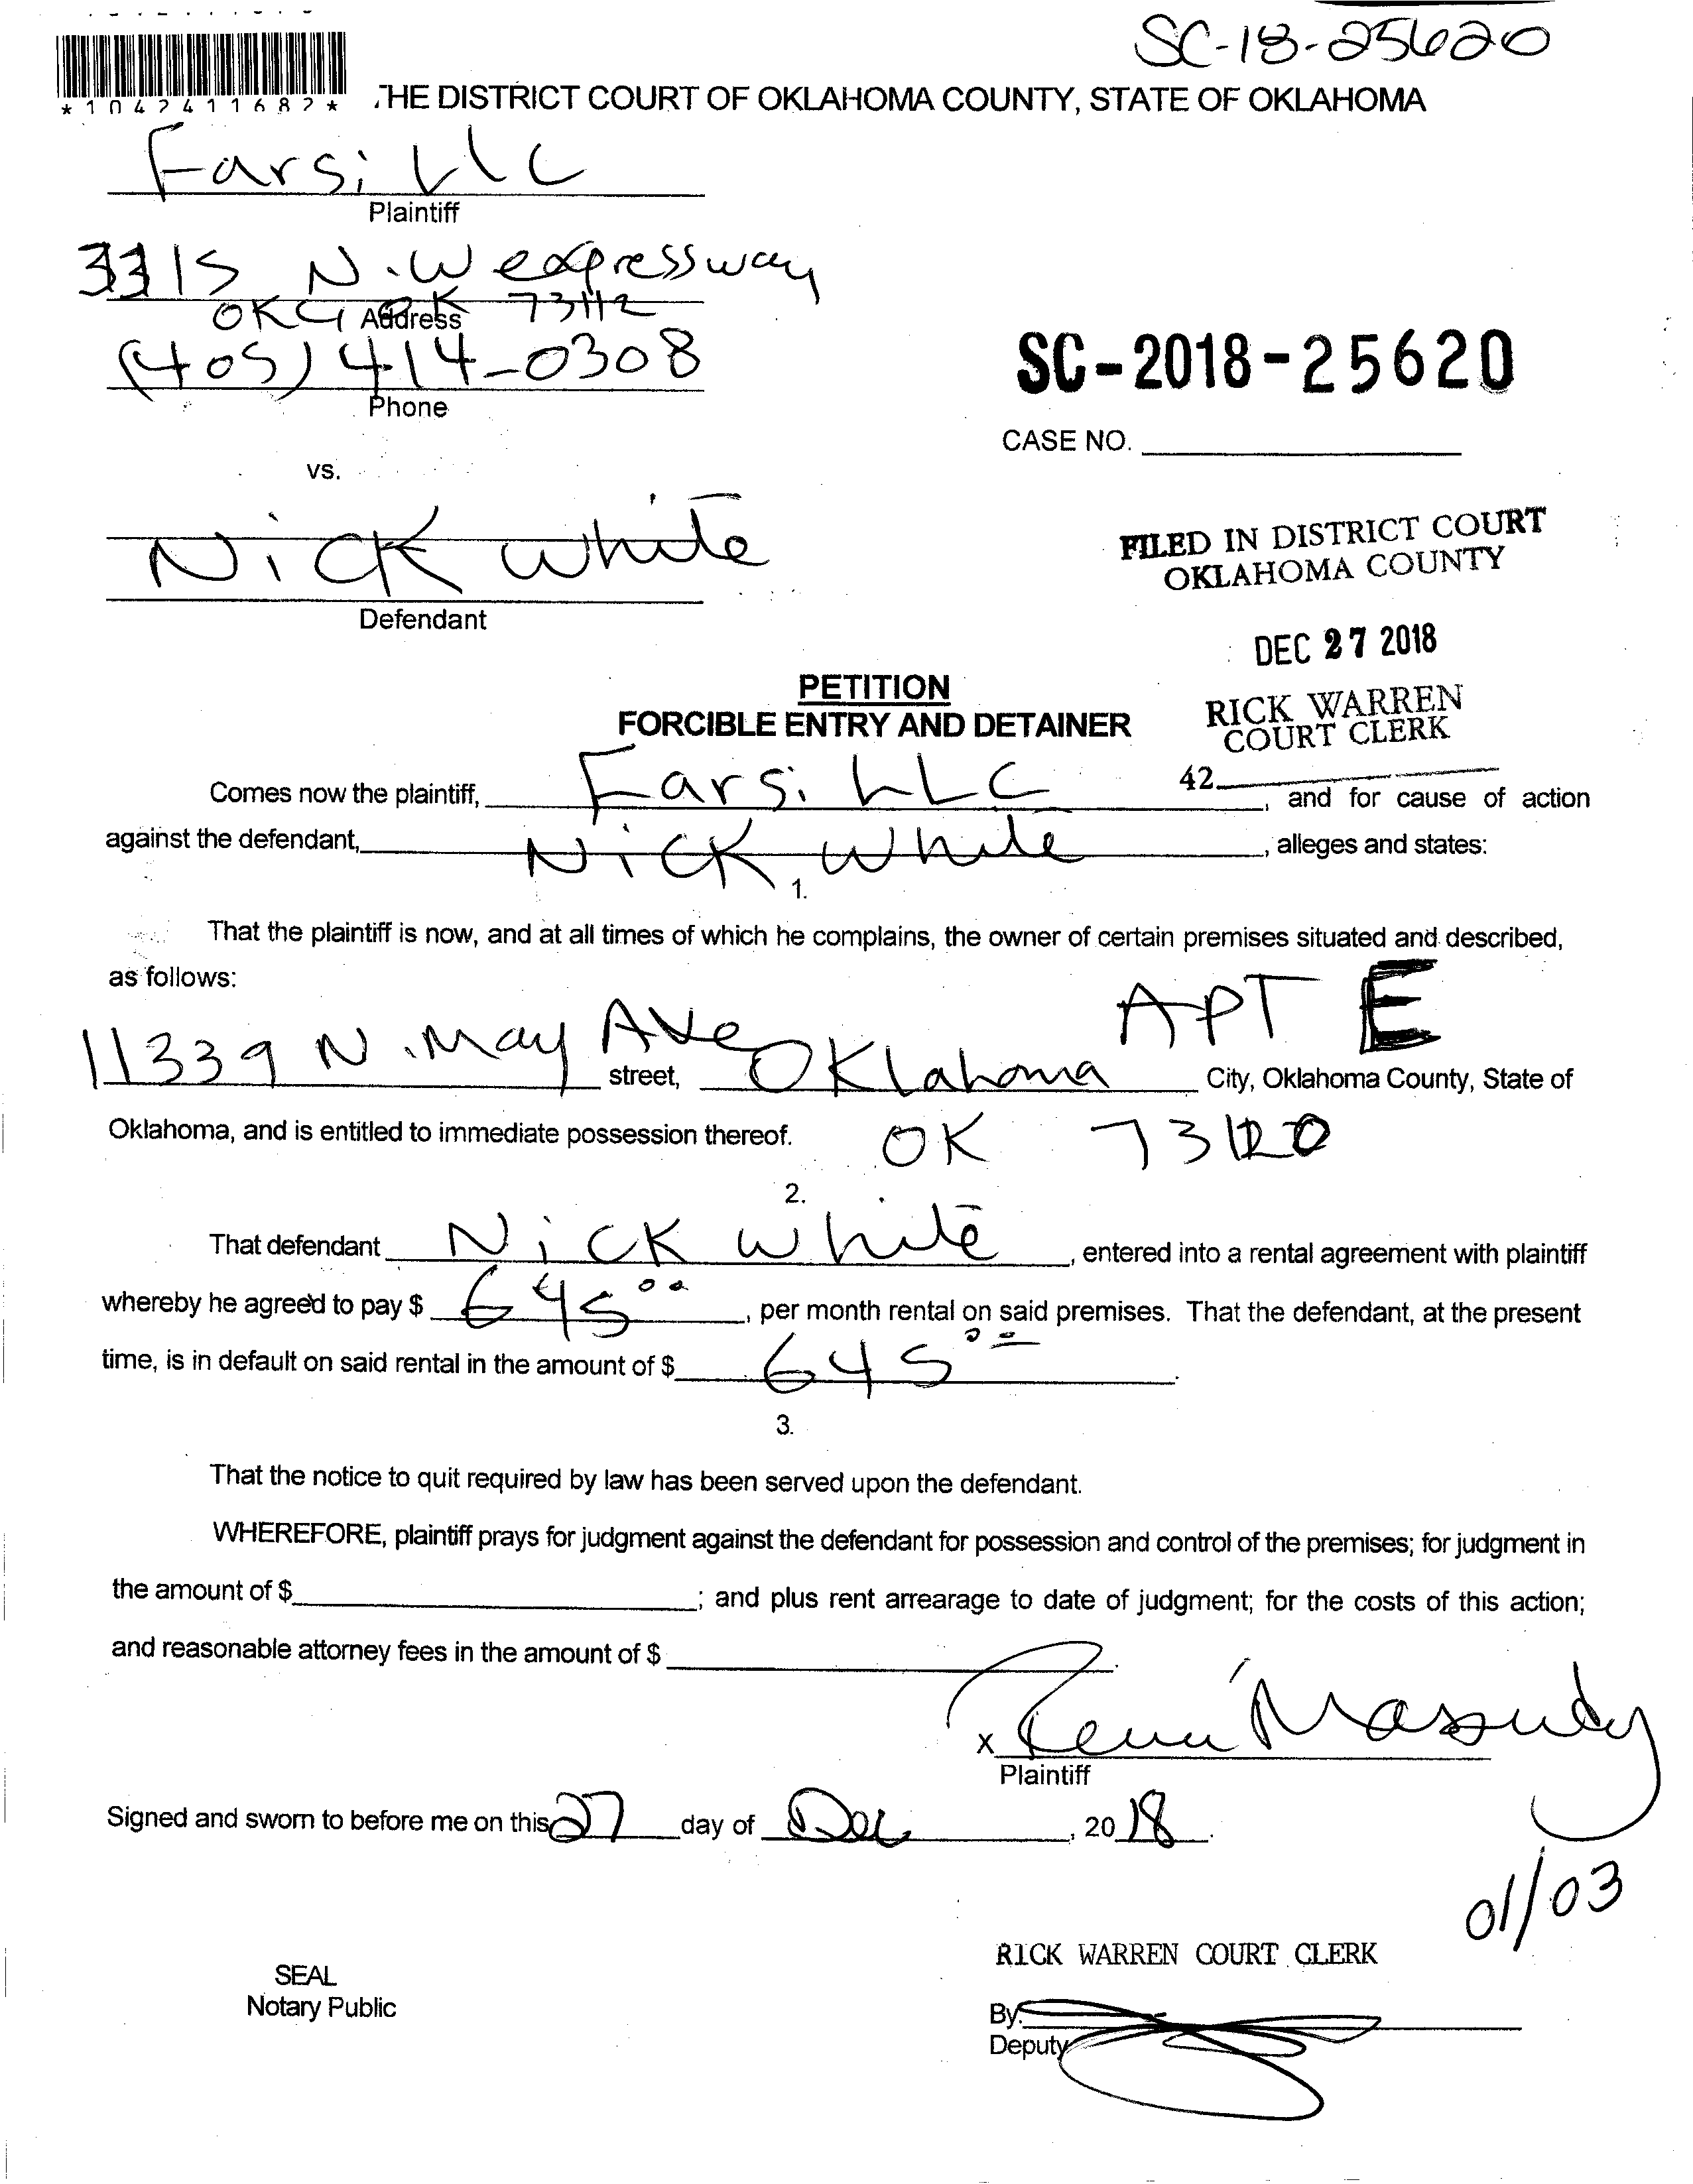 SC-18-25620
*1042411682*
THE DISTRICT COURT OF OKLAHOMA COUNTY, STATE OF OKLAHOMA
Farsi LLC
Plaintiff
3315 N.W expressway
OKC OK 73112
Address
(405) 414-0308
Phone
SC-2018-25620
CASE NO.
vs.
Nick White
Defendant
FILED IN DISTRICT COURT
OKLAHOMA COUNTY
DEC 27 2018
RICK WARREN
COURT CLERK
42
PETITION
FORCIBLE ENTRY AND DETAINER
Comes now the plaintiff, Farsi LLC, and for cause of action
against the defendant, Nick White, alleges and states:
1.
That the plaintiff is now, and at all times of which he complains, the owner of certain premises situated and described,
as follows:
APT E
11339 N. May Ave street, Oklahoma City, Oklahoma County, State of
Oklahoma, and is entitled to immediate possession thereof. OK 73120
2.
That defendant Nick White, entered into a rental agreement with plaintiff
whereby he agreed to pay $ 645 00, per month rental on said premises. That the defendant, at the present
time, is in default on said rental in the amount of $ 645 00.
3.
That the notice to quit required by law has been served upon the defendant.
WHEREFORE, plaintiff prays for judgment against the defendant for possession and control of the premises; for judgment in
the amount of $ ; and plus rent arrearage to date of judgment; for the costs of this action;
and reasonable attorney fees in the amount of $ .
x
Plaintiff
Signed and sworn to before me on this 27 day of Dec, 20 18.
01/03
RICK WARREN COURT CLERK
SEAL
Notary Public
By:
Deputy